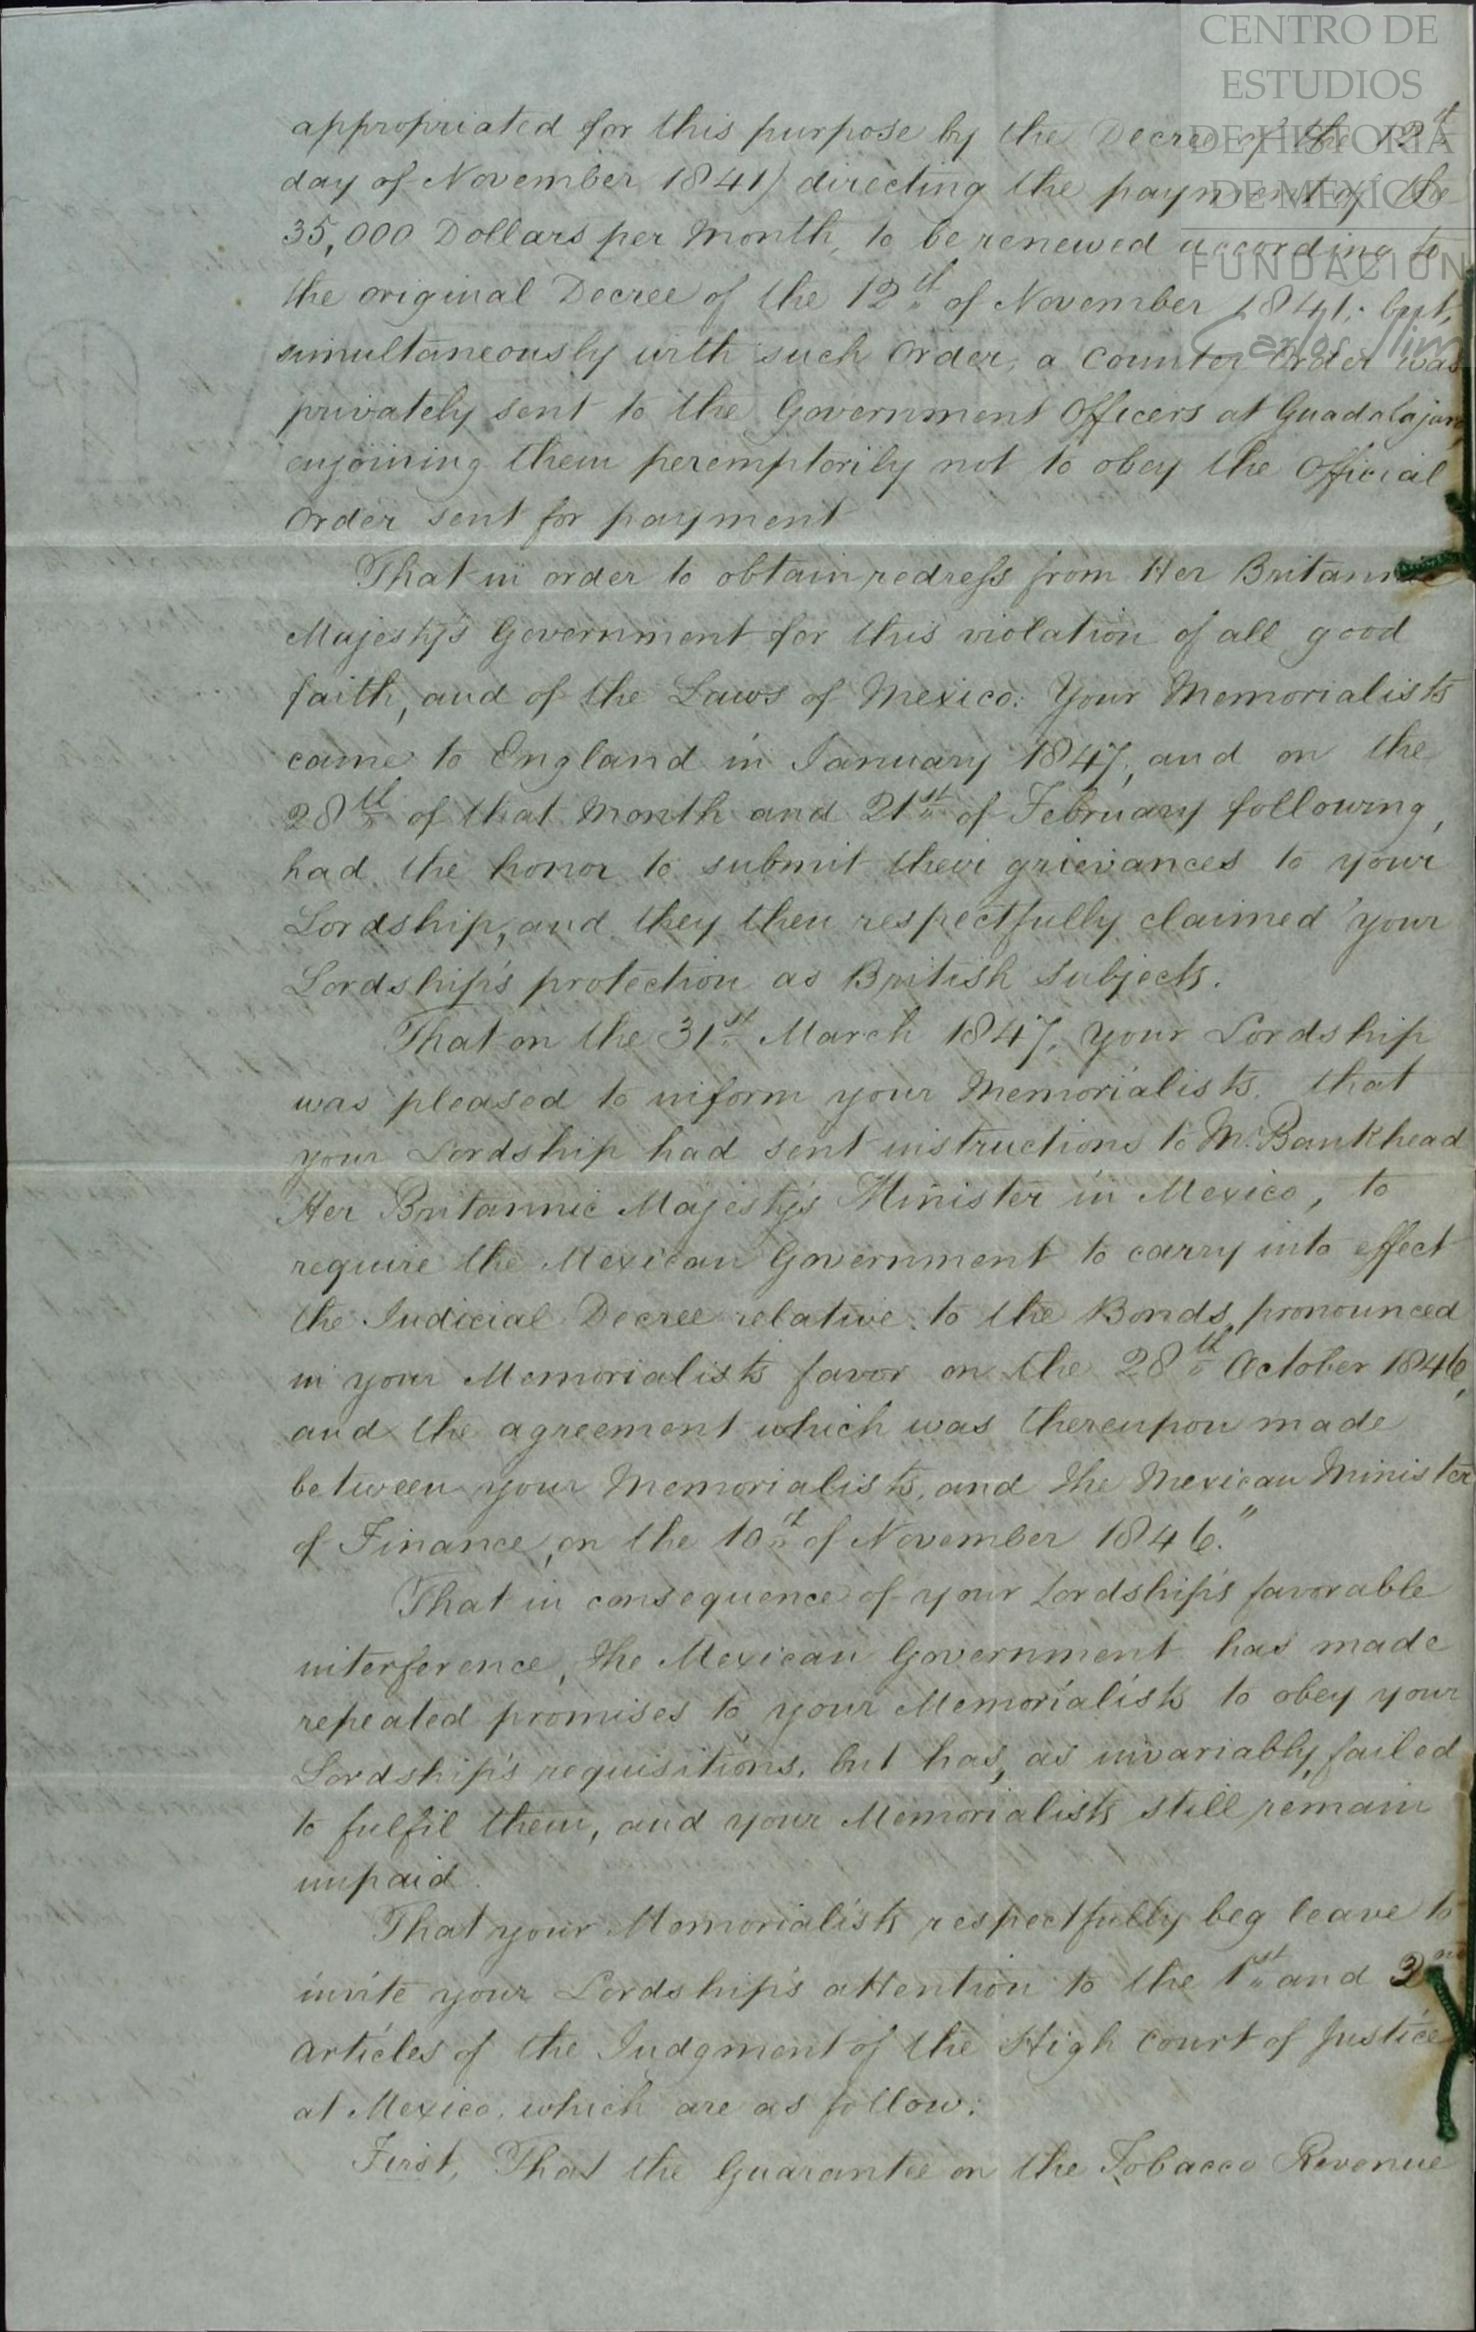 CENTRO DE
ESTUDIOS
DE HISTORIA
DE MEXICO
FUNDACION
Carlos Slim
appropriated for this purpose by the Decree of the 12th
day of November 1841) directing the payment of the
35,000 Dollars per Month, to be renewed according to
the original Decree of the 12th of November 1841; but,
simultaneously with such Order, a Counter Order was
privately sent to the Government Officers at Guadalajara
enjoining them peremptorily not to obey the Official
Order sent for payment
That in order to obtain redress from Her Britannic
Majesty's Government for this violation of all good
faith, and of the Laws of Mexico: Your Memorialists
came to England in January 1847, and on the
28th of that Month and 21st of February following,
had the honor to submit their grievances to your
Lordship, and they then respectfully claimed your
Lordship's protection as British Subjects.
That on the 31st March 1847, your Lordship
was pleased to inform your Memorialists, that
your Lordship had sent instructions to Mr. Bankhead
Her Britannic Majesty's Minister in Mexico, to
require the Mexican Government to carry into effect
the Judicial Decree relative to the Bonds, pronounced
in your Memorialists favor on the 28th October 1846,
and the agreement which was thereupon made
between your Memorialists, and the Mexican Minister
of Finance, on the 10th of November 1846."
That in consequence of your Lordship's favorable
interference, the Mexican Government has made
repeated promises to your Memorialists to obey your
Lordship's requisitions, but has, as invariably, failed
to fulfil them, and your Memorialists still remain
unpaid.
That your Memorialists respectfully beg leave to
invite your Lordship's attention to the 1st and
Articles of the Judgment of the High Court of Justice
at Mexico, which are as follow:
First, That the Guarantee on the Tobacco Revenue